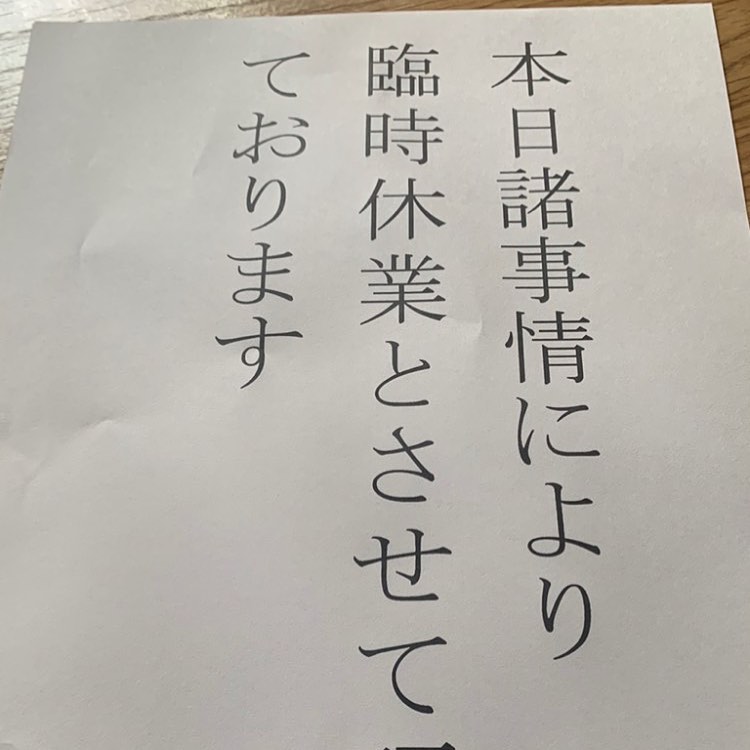 本日諸事情により
臨時休業とさせて
ております